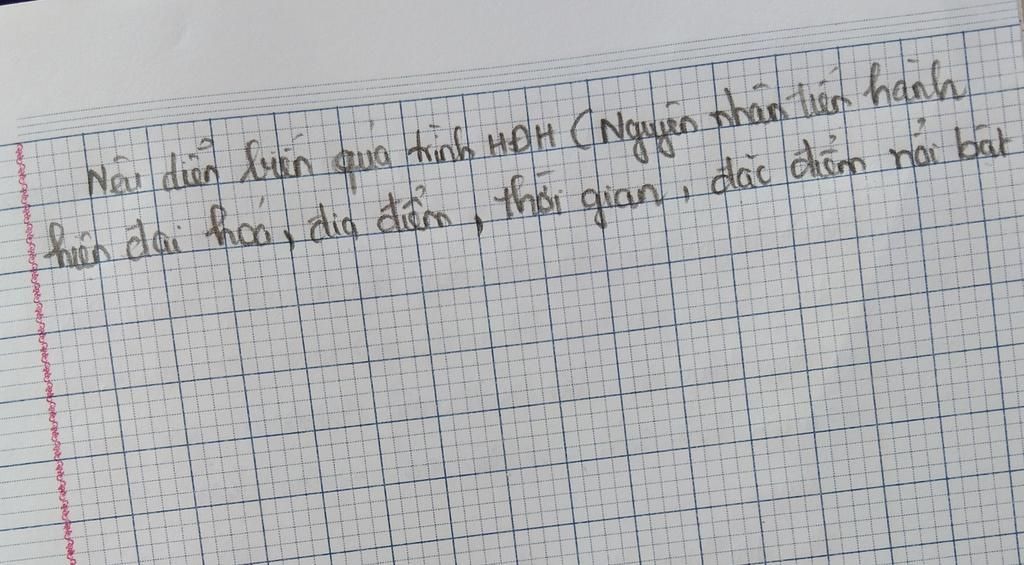 Nêu diễn biến quá trình HĐH (Nguyên nhân tiến hành
hiện đại hoá, địa điểm, thời gian, đặc điểm nổi bật